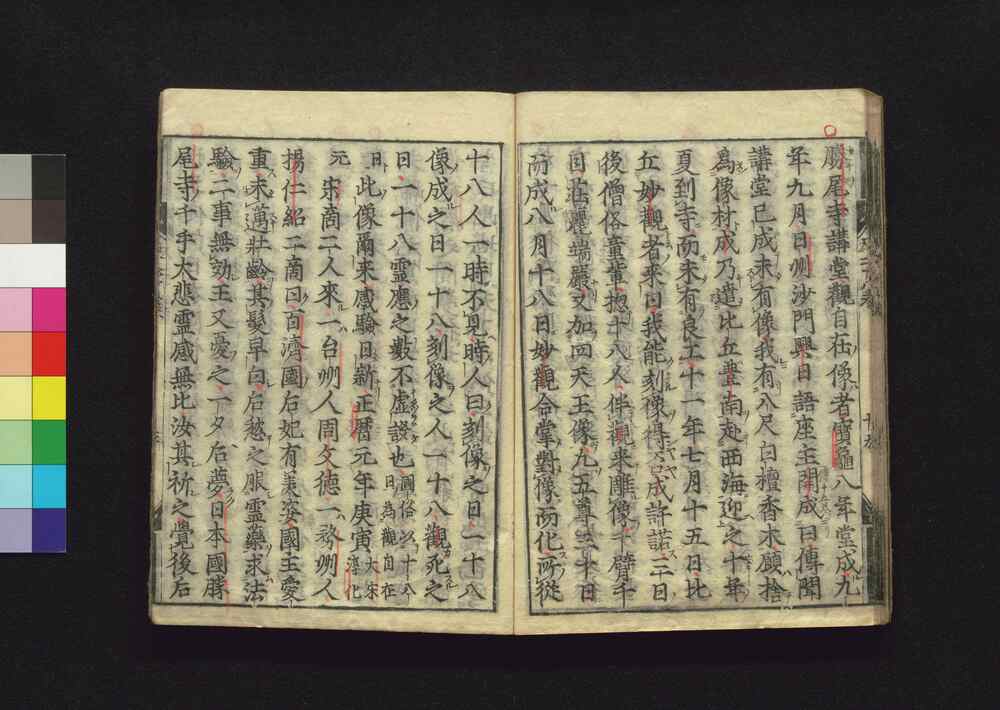 勝尾寺講堂觀自在像者寶龜八年堂成九
年九月日州沙門興日語座主開成曰傳聞
講堂已成未有像我有八尺白檀香木願捨
為像材成乃遣比丘豊南赴西海迎之十年
夏到寺而未有良工十一年七月十五日比
丘妙觀者來曰我能刻像得否成許諾二十日
後僧俗童輩惣十八人伴觀来雕像千臂千
目莊麗端嚴又加四天王像九五尊三十日
而成八月十八日妙觀合掌對像而化所從
十八人一時不見時人曰刻像之日一十八
像成之日一十八刻像之人一十八觀死之
日一十八靈應之數不虛設也國俗以十八
日為觀自在
日此像爾来感驗日新正曆元年庚寅大宋
淳化
元宋商二人來一台州人周文德一婺州人
楊仁紹二商曰百濟國后妃有美姿國主愛
重未邁壯齡其髮早白后愁之服靈藥求法
驗二事無効王又憂之一夕后夢日本國勝
尾寺千手大悲靈感無比汝其祈之覺後后